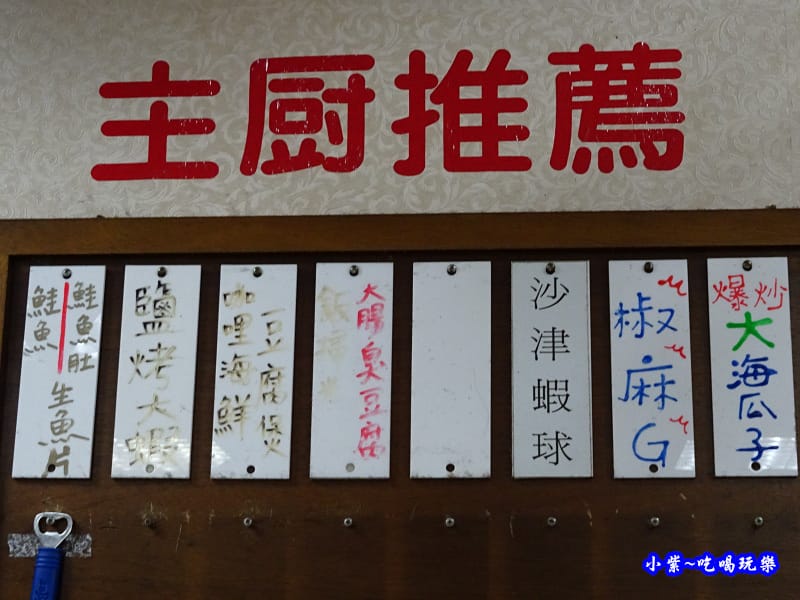 主厨推薦
爆炒大海瓜子
椒麻G
沙津蝦球
大腸臭豆腐
豆腐煲
咖哩海鮮
鹽烤大蝦
鮭魚肚
鮭魚
生魚片
小紫~吃喝玩樂